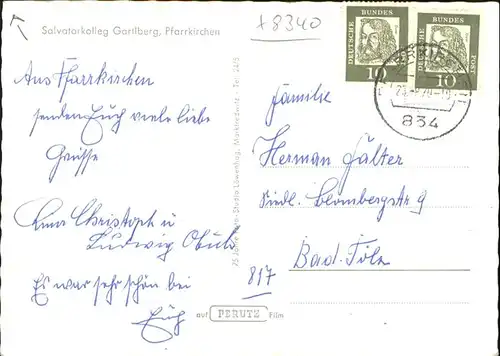 +8340
Salvatorkolleg Gartlberg, Pfarrkirchen
DEUTSCHE BUNDES POST
10
DEUTSCHE BUNDES POST
10
834
Aus Pfarrkirchen
senden Euch viele liebe
Grüsse
Christoph u
Ludwig
Es war sehr schön bei
Euch
Familie
Herman
Siedl. Blombergstr 9
817 Bad-Tölz
auf PERUTZ Film